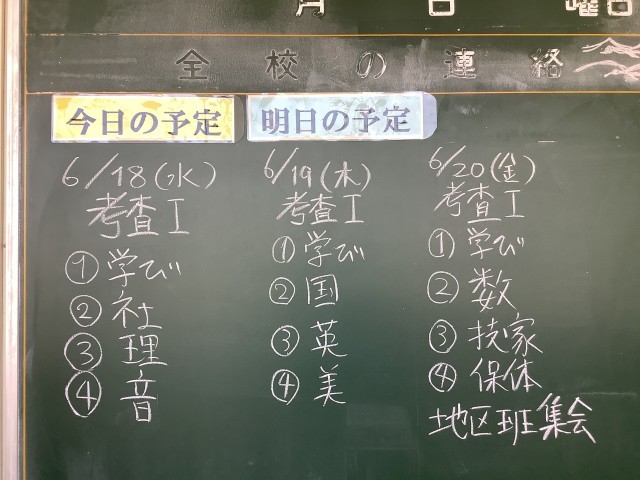 月 日 曜日
全校の連絡
今日の予定
6/18(水)
考査I
①学び
②社
③理
④音
明日の予定
6/19(木)
考査I
①学び
②国
③英
④美
6/20(金)
考査I
①学び
②数
③技家
④保体
地区班集会